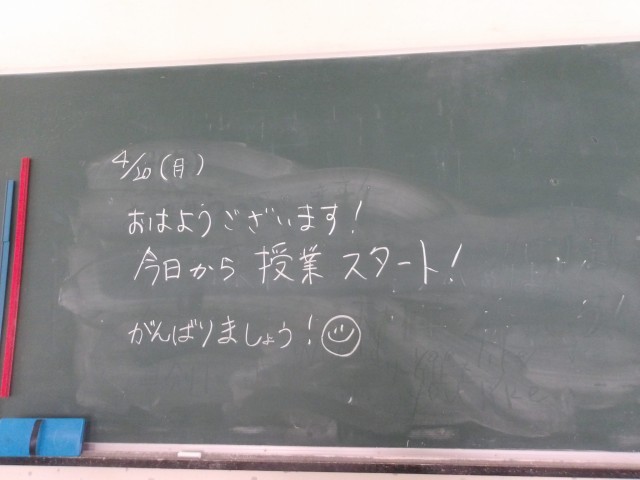 4/20(月)
おはようございます!
今日から 授業 スタート!
がんばりましょう!